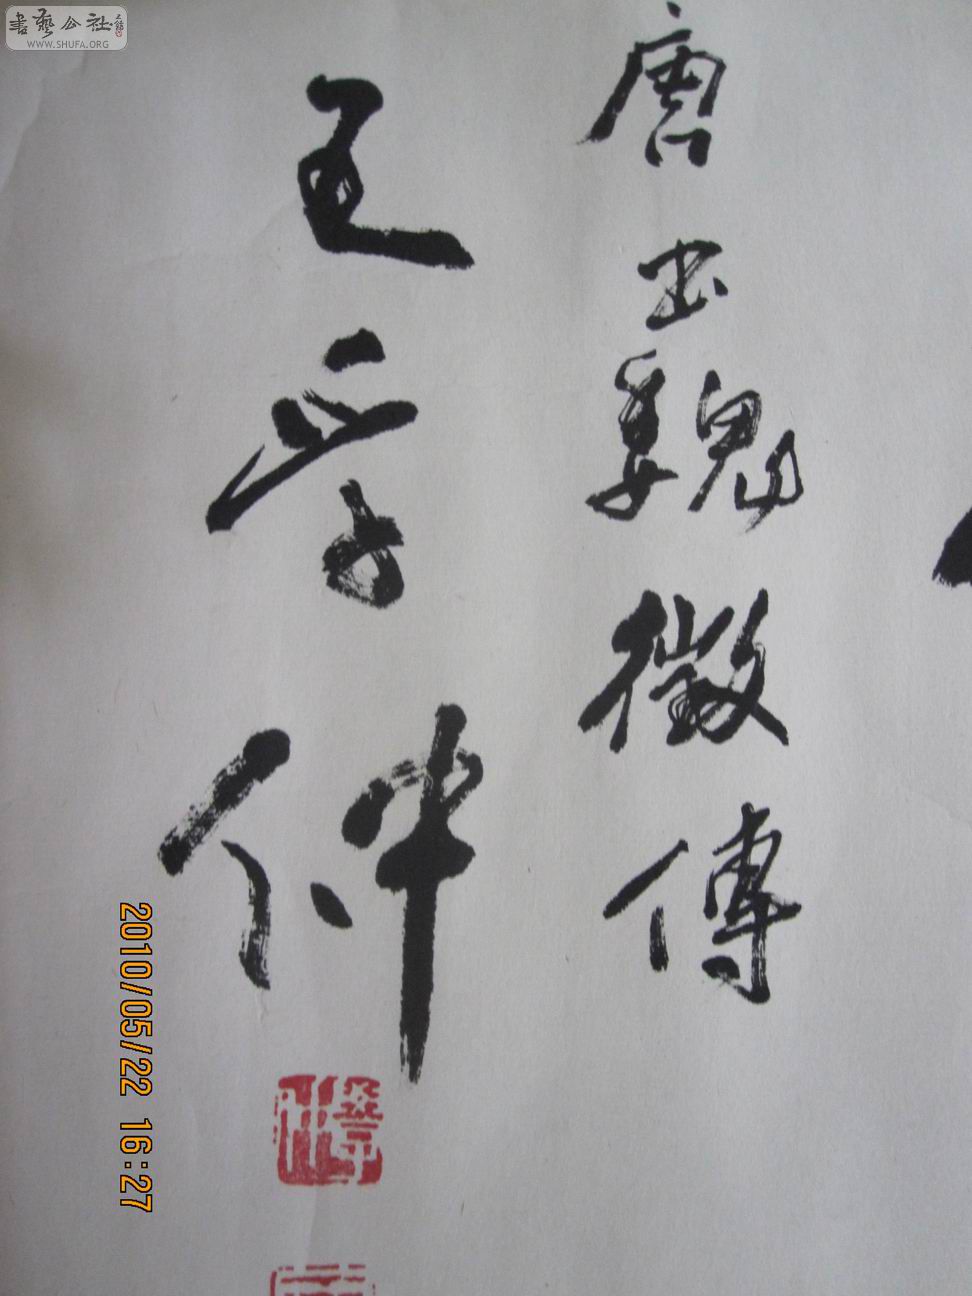 書藝公社
WWW.SHUFA.ORG
唐书魏徵傳
王学仲
2010/05/22 16:27